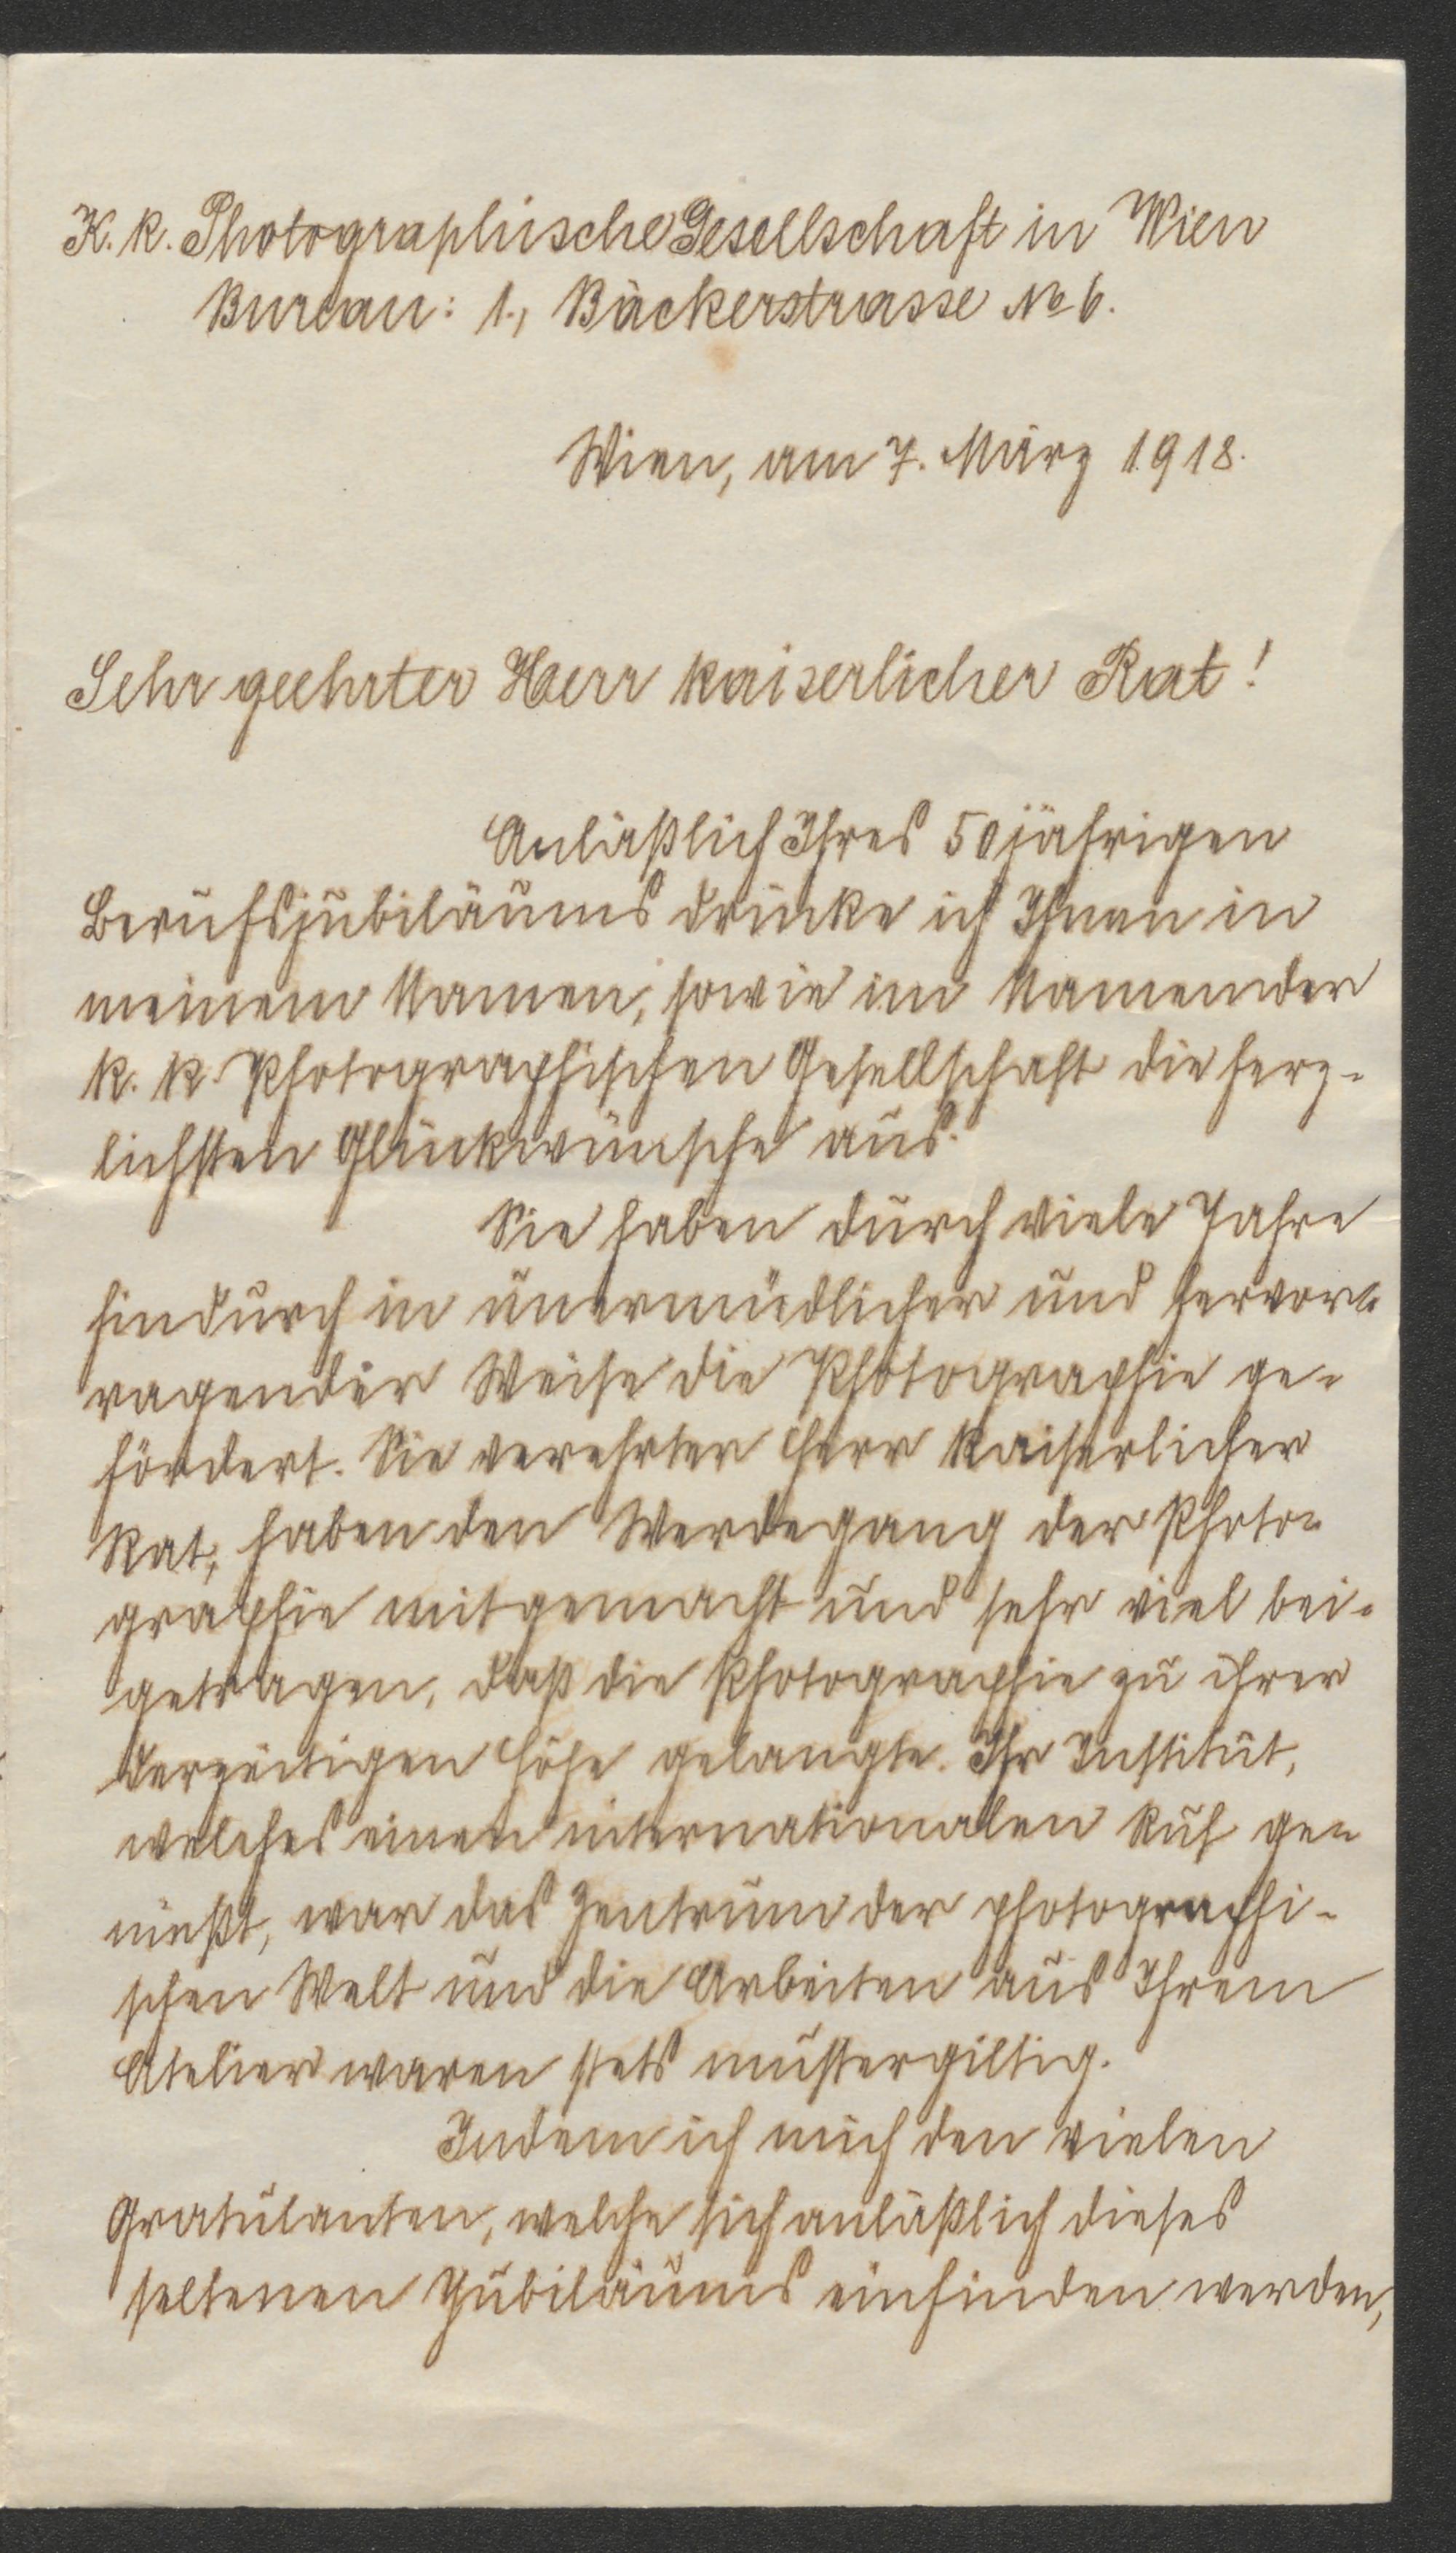 K. k. Photographische Gesellschaft in Wien
Bureau: 1., Bäckerstrasse No 6.
Wien, am 7. März 1918.
Sehr geehrter Herr kaiserlicher Rat!
Anläßlich Ihres 50jährigen
Berufsjubiläums drücke ich Ihnen in
meinem Namen, sowie im Namen der
k. k. Photographischen Gesellschaft die herz-
lichsten Glückwünsche aus.
Sie haben durch viele Jahre
hindurch in unermüdlicher und hervor-
ragender Weise die Photographie ge-
fördert. Sie verehrter Herr kaiserlicher
Rat, haben den Werdegang der Photo-
graphie mitgemacht und sehr viel bei-
getragen, daß die Photographie zu ihrer
derzeitigen Höhe gelangte. Ihr Institut,
welches einen internationalen Ruf ge-
nießt, war das Zentrum der photographi-
schen Welt und die Arbeiten aus Ihrem
Atelier waren stets mustergiltig.
Indem ich mich den vielen
Gratulanten, welche sich anläßlich dieses
seltenen Jubiläums einfinden werden,